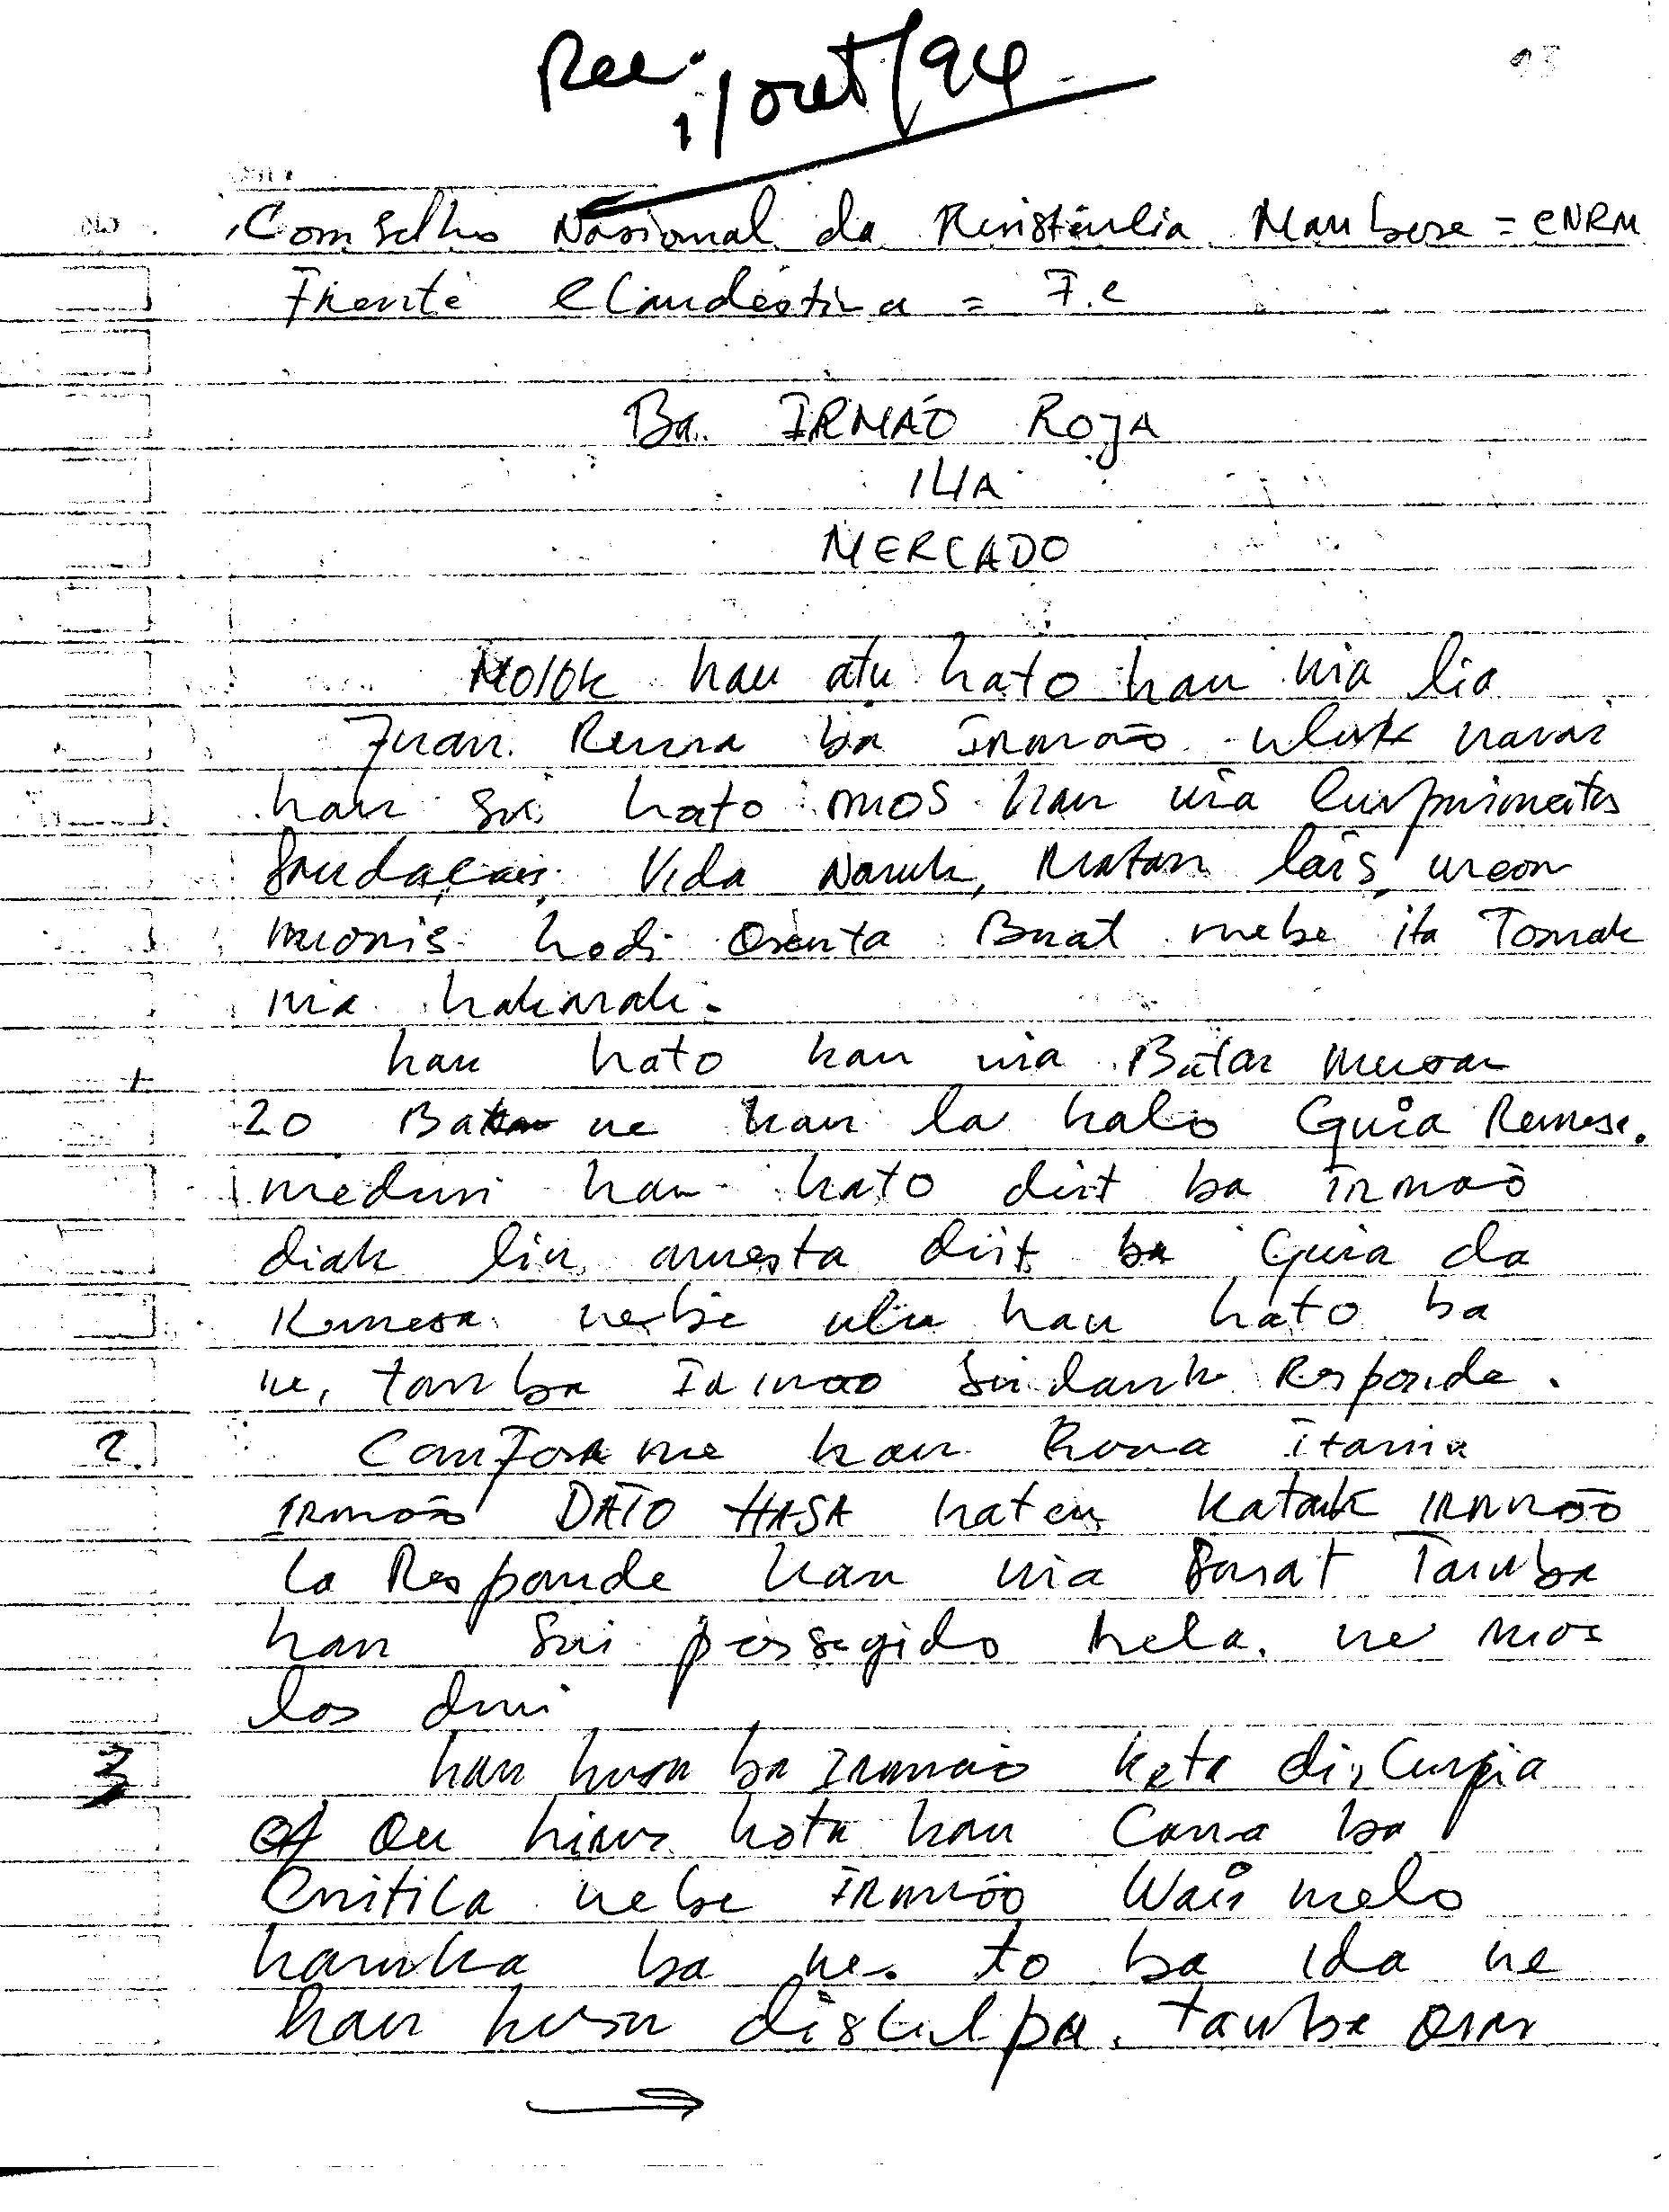 Rec. 1/out/94
93
Comselho Nasional da Resistênlia Maubere = CNRM
Frente Clandestina = F.C
Ba. IRMÃO ROJA
IHA
MERCADO
Molok hau atu hato hau nia lia
Fuan Ruma ba Irmão uluk nanai
hau sei hato mos hau nia Cumprimentos
Saudações, Vida Naruk, Matan lais, neon
monis hodi Orienta Buat nebe ita Tomak
nia hakarak.
hau hato hau nia Batar musan
20 ne hau la halo Guia Remesa.
hau hato dirt ba Irmão
diak liu dirt ba Guia da
Remesa nebe ulu hau hato ba
ne, tamba Irmao Seidauk Responde.
2. Conforme hau Rona Itania
Irmão DATO HASA haten katak IRMÃO
la Responde hau nia Surat Tamba
hau Sei persegido hela. ne mos
los duni
3 hau husu ba Irmão keta disCurpia
Ou hirus hota hau Cona ba
Critica nebe IRMÃO Wais melo
haruka ba ne. to ba ida ne
hau husu disculpa. tamba oras